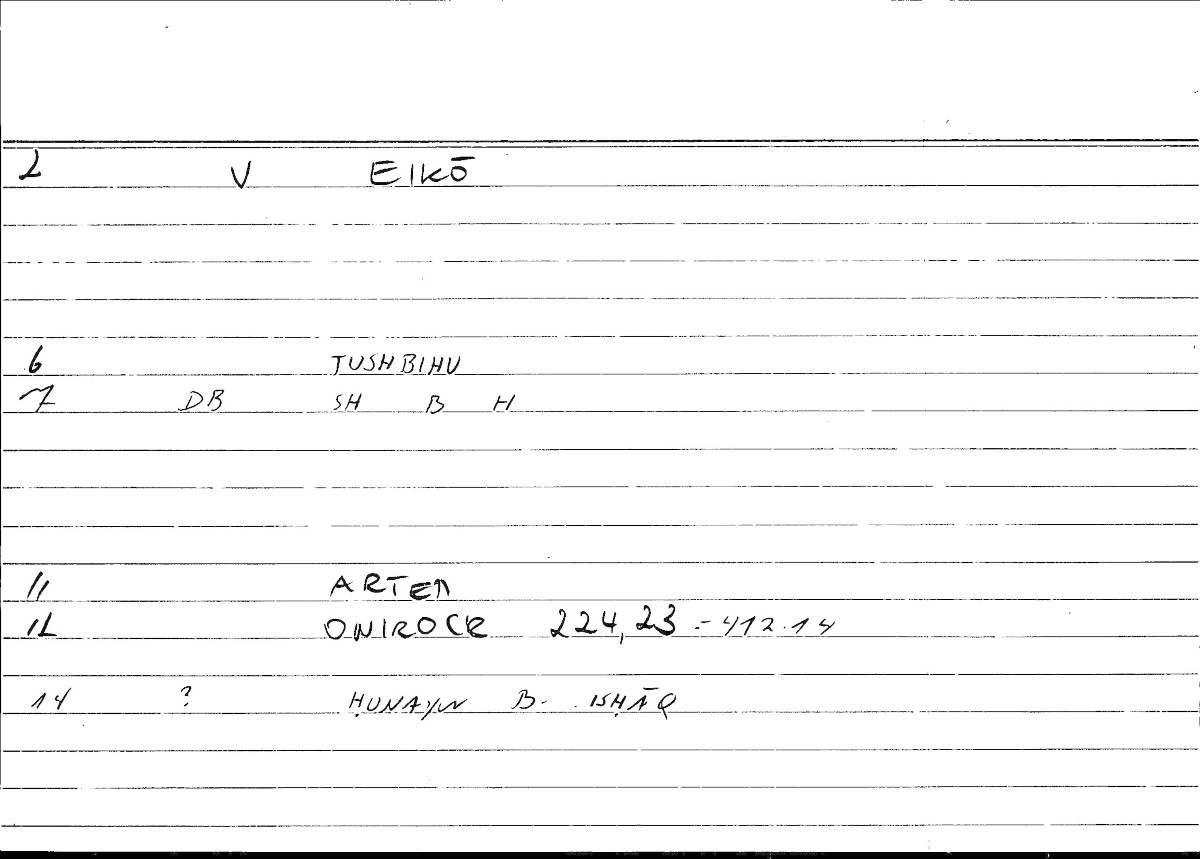 2 V EIKŌ
6 TUSHBIHU
7 DB SH B H
11 ARTEM
12 ONIROCR 224,23 = 412.14
14 ? ḤUNAYN B. ISḤĀQ